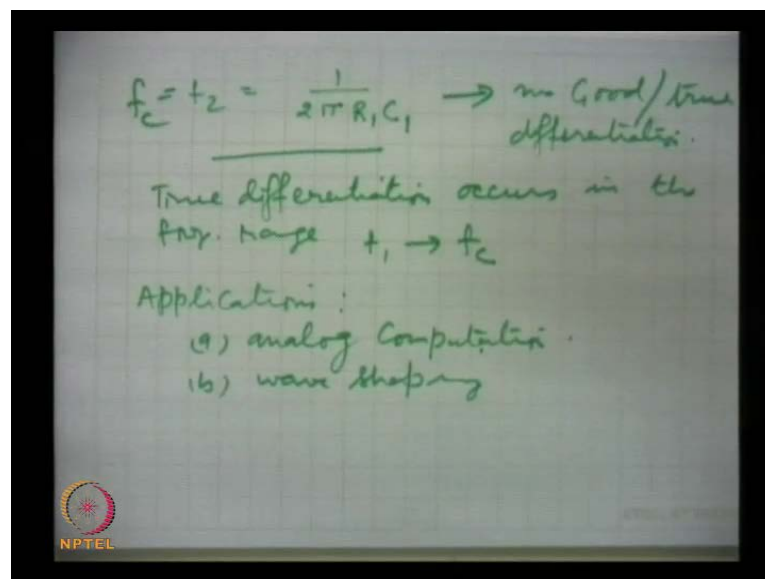 f_c = f_2 = 1 / 2π R_1 C_1 → no Good/true
differentiation.
True differentiation occurs in the
freq. range f_1 → f_c
Applications:
(a) analog Computation.
(b) wave shaping
NPTEL